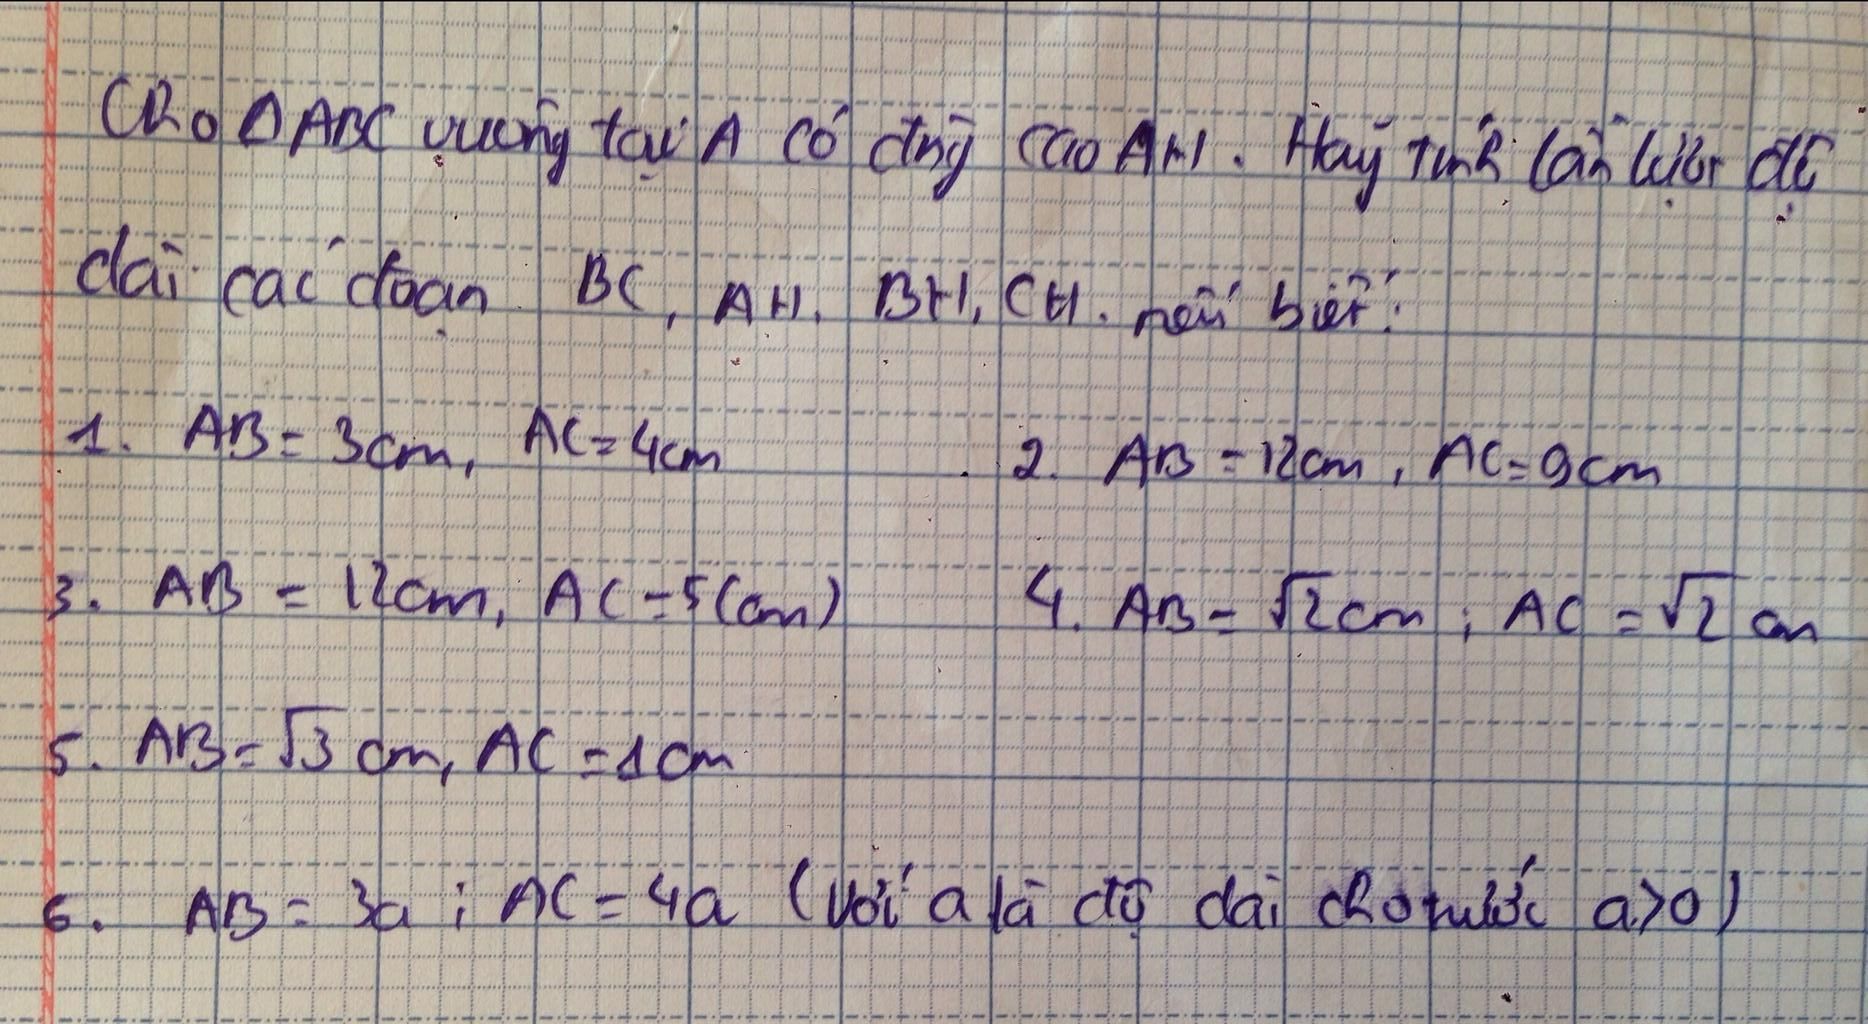 Cho Δ ABC vuông tại A có đng̀ cao AH. Hãy tính lần lượt độ
dài các đoạn BC, AH, BH, CH. nếu biết:
1. AB = 3cm, AC = 4cm 2. AB = 12cm, AC = 9cm
3. AB = 12cm, AC = 5(cm) 4. AB = √2cm ; AC = √2 cm
5. AB = √3 cm, AC = 1cm
6. AB = 3a ; AC = 4a (với a là độ dài cho trước a>0)